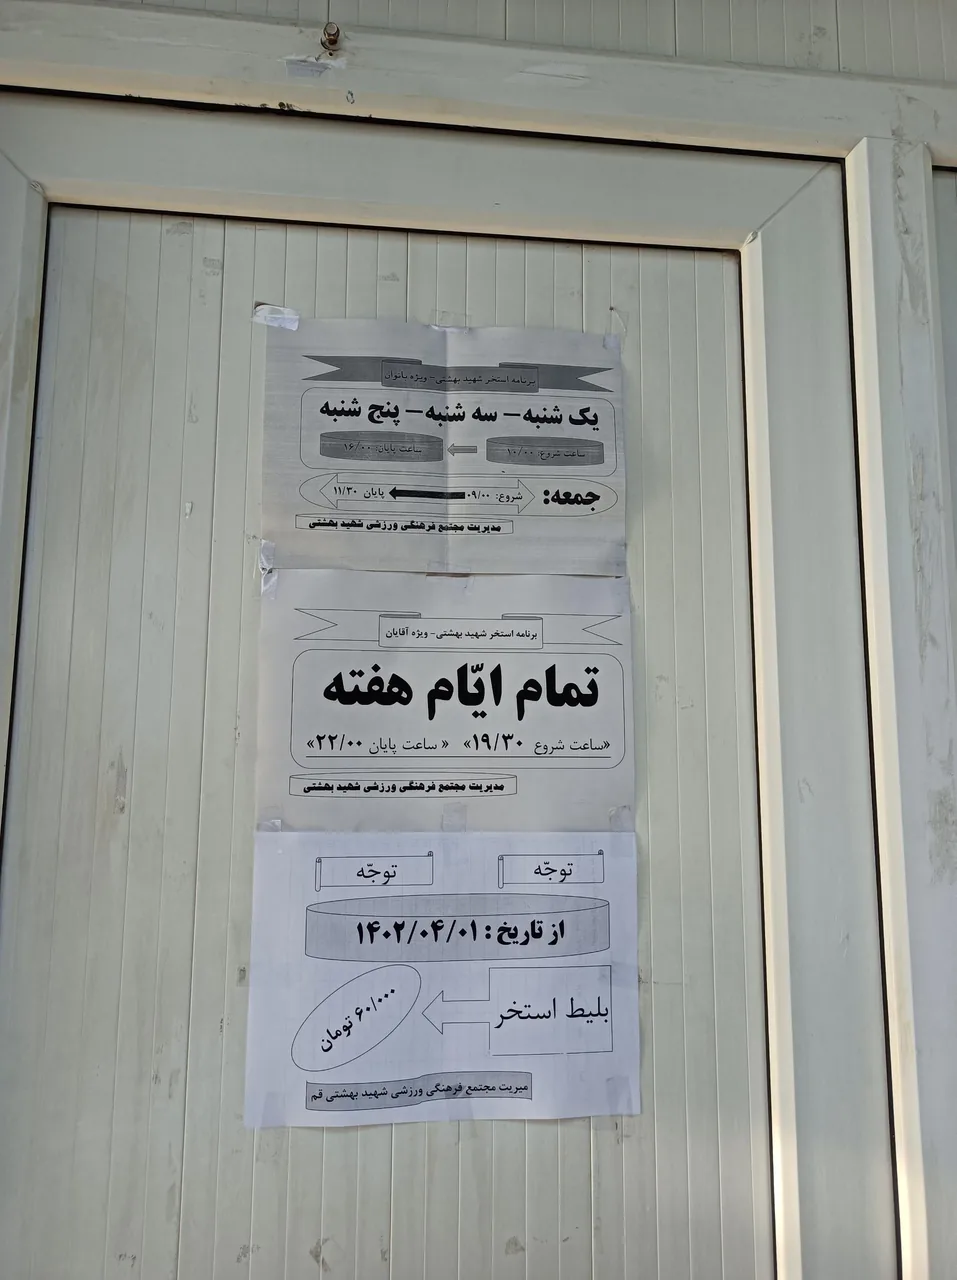 برنامه استخر شهید بهشتی- ویژه بانوان
یک شنبه – سه شنبه – پنج شنبه
ساعت شروع: ۱۰/۰۰ ساعت پایان: ۱۶/۰۰
جمعه: شروع: ۰۹/۰۰ پایان ۱۱/۳۰
مدیریت مجتمع فرهنگی ورزشی شهید بهشتی
برنامه استخر شهید بهشتی- ویژه آقایان
تمام ایّام هفته
«ساعت شروع ۱۹/۳۰» « ساعت پایان ۲۲/۰۰»
مدیریت مجتمع فرهنگی ورزشی شهید بهشتی
توجّه توجّه
از تاریخ : ۱۴۰۲/۰۴/۰۱
بلیط استخر ۶۰/۰۰۰ تومان
میریت مجتمع فرهنگی ورزشی شهید بهشتی قم